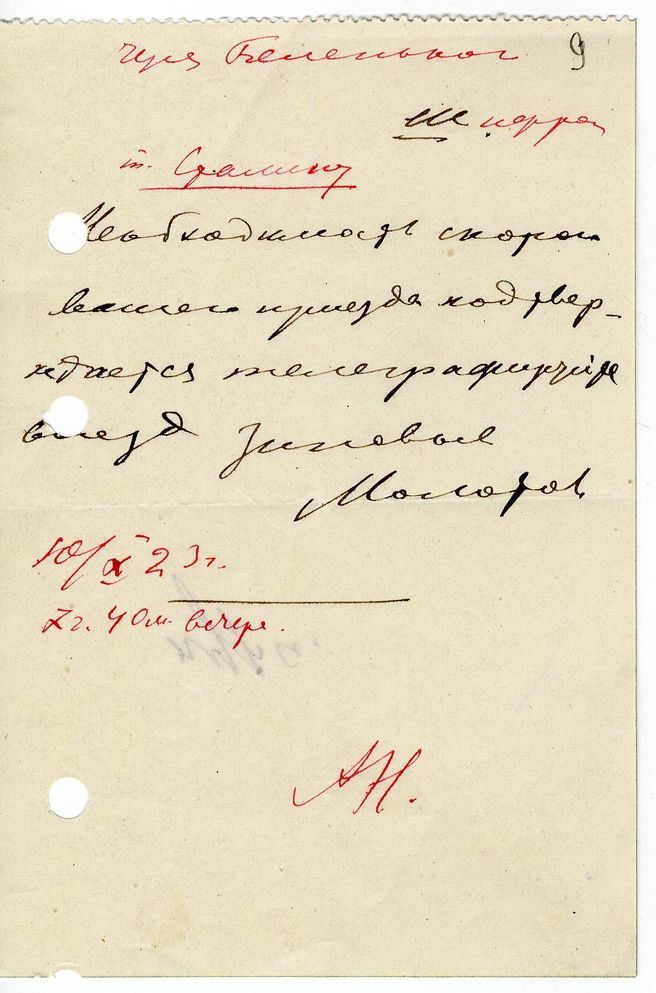 через Беленького
9
Шифром
т. Сталину
Необходимость скорого
вашего приезда подтвер-
ждается телеграфируйте
выезд Зиновьев
Молотов
10/X 23 г.
7 ч. 40 м. вечера.
АН.